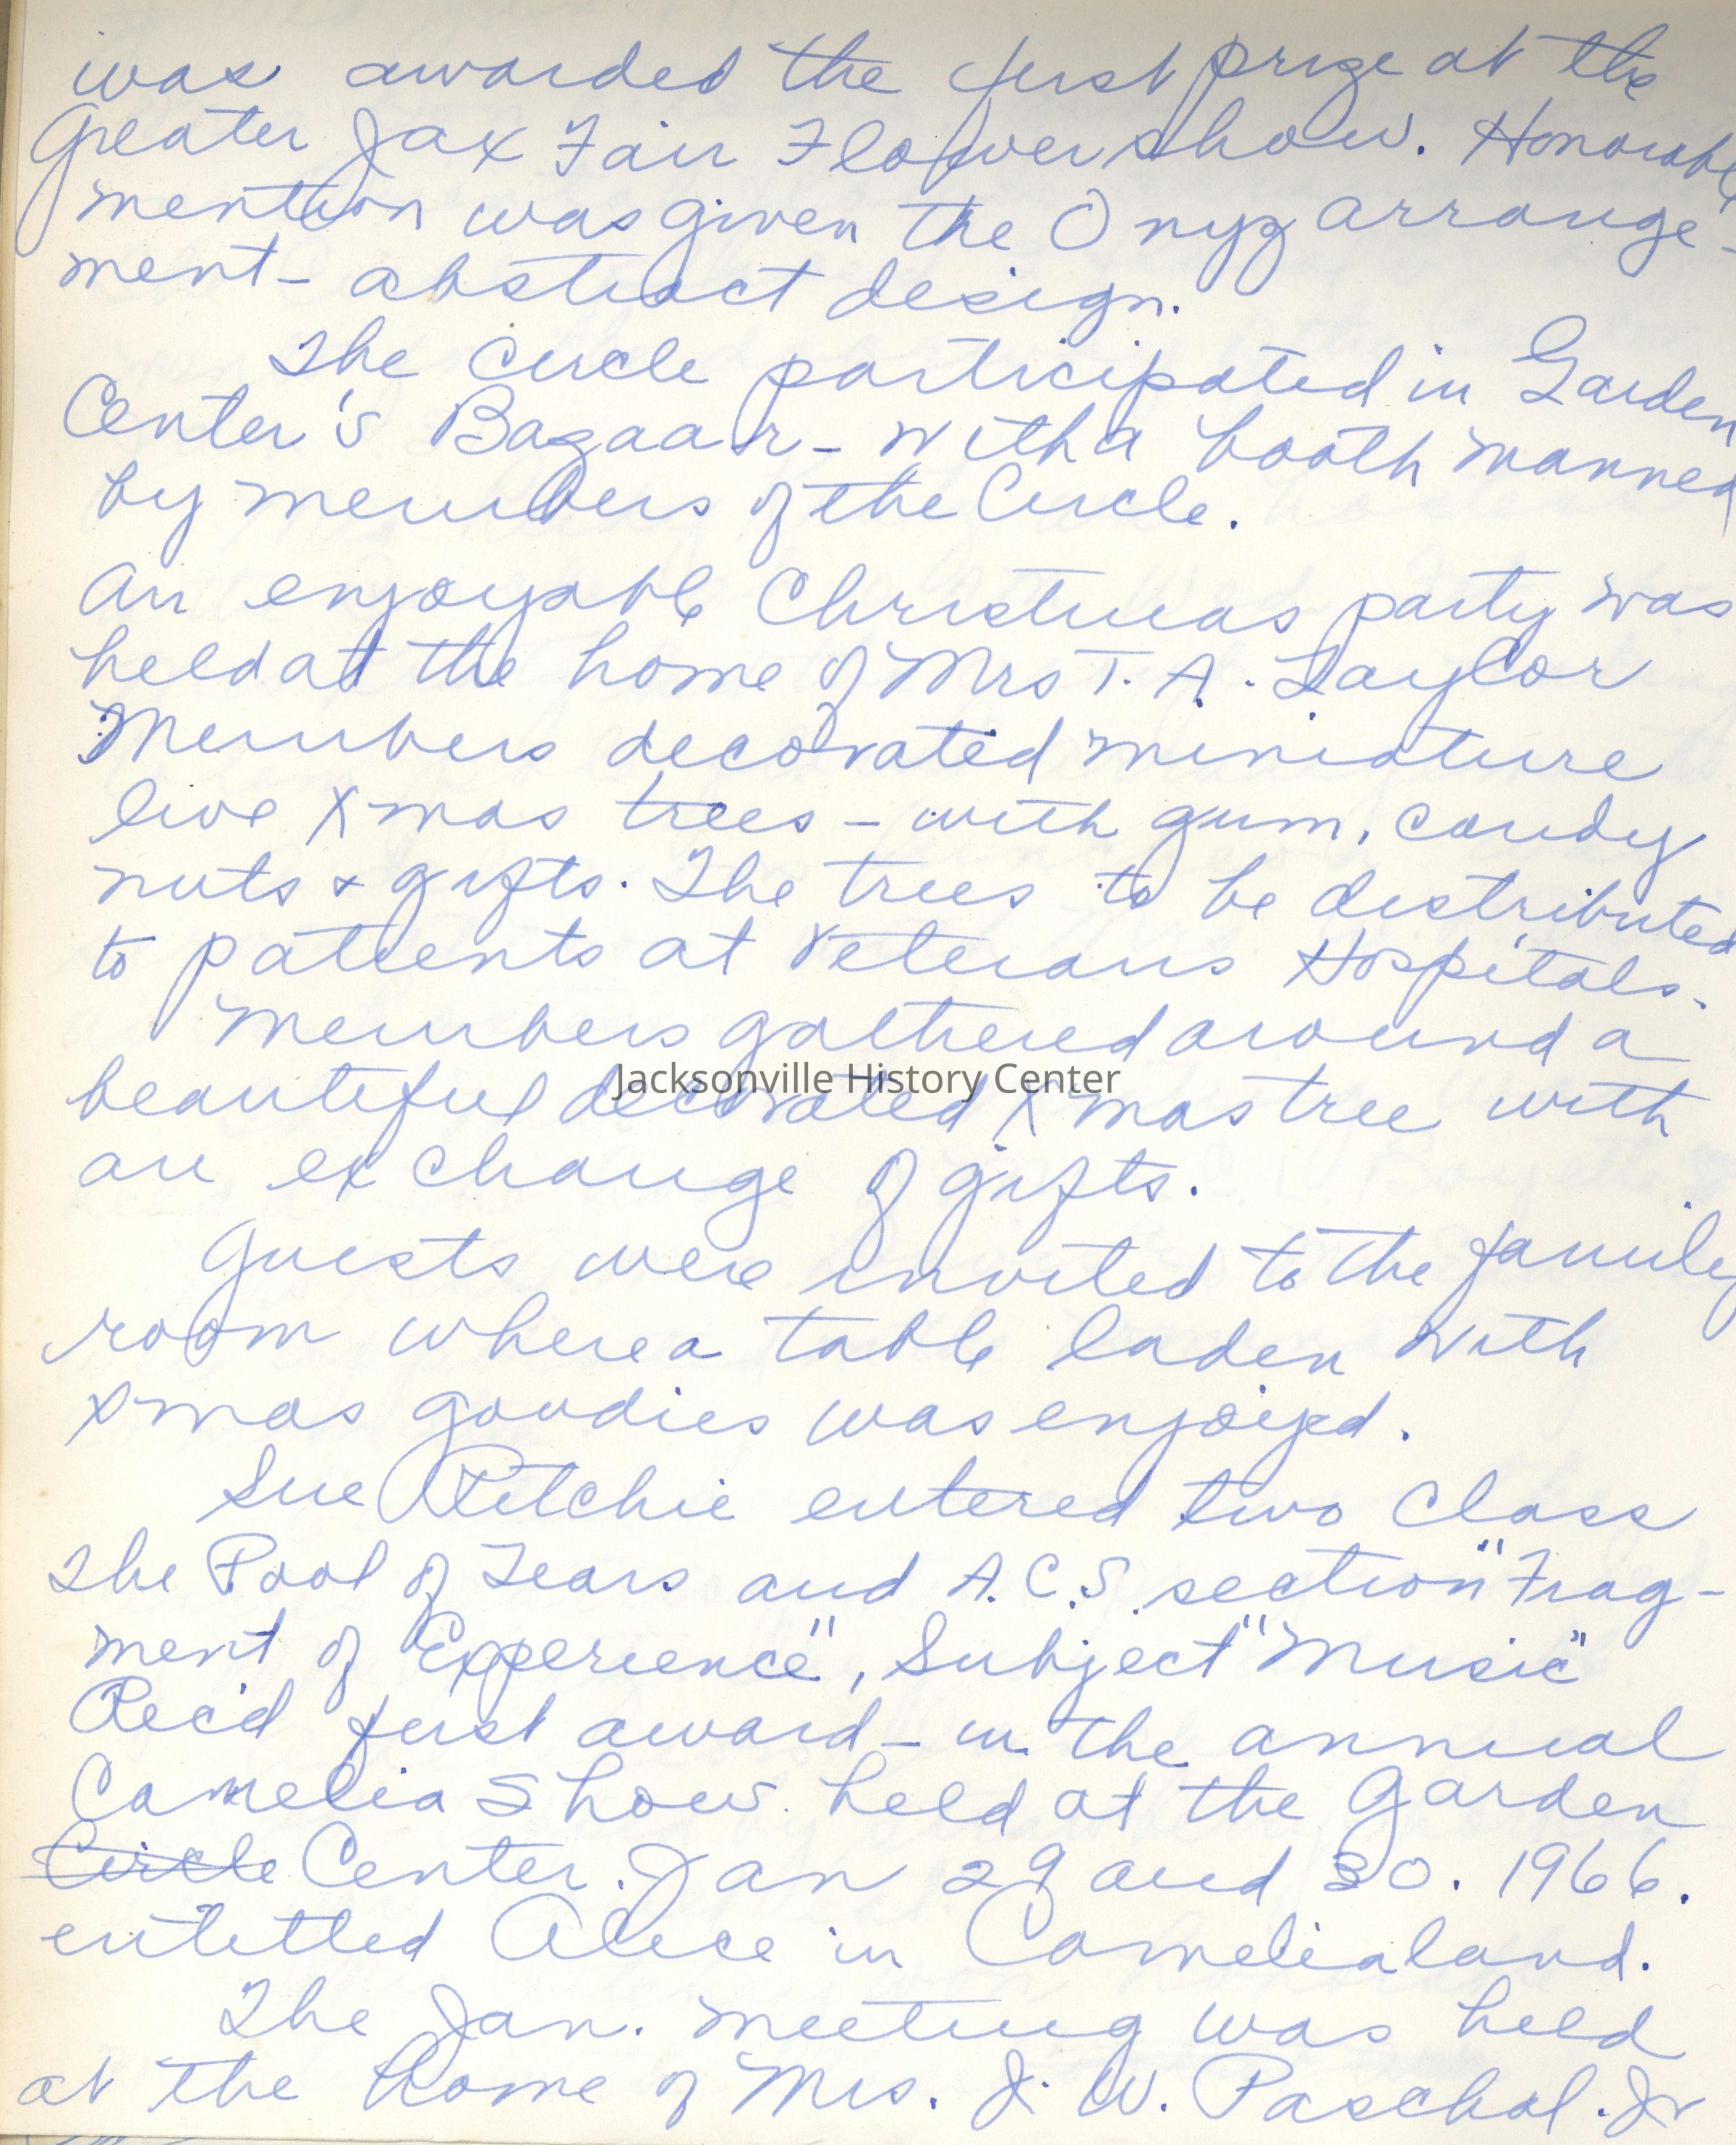 was awarded the first prize at the
Greater Jax Fair Flower show. Honorable
mention was given the Onyz arrange-
ment - abstract design.
The Circle participated in Garden
Center's Bazaar - with a booth manned
by members of the Circle.
An enjoyable Christmas party was
held at the home of Mrs T. A. Taylor
Members decorated miniature
live Xmas trees - with gum, candy
nuts & gifts. The trees to be distributed
to patients at Veterans Hospitals.
Members gathered around a
Jacksonville History Center
beautiful decorated Xmas tree with
an exchange of gifts.
Guests were invited to the family
room where a table laden with
Xmas goodies was enjoyed.
Sue Ritchie entered two Class
The Pool of Tears and A.C.S. section "Frag-
ment of Experience", Subject "Music"
Rec'd first award - in the annual
Camelia Show held at the Garden
Circle Center. Jan 29 and 30. 1966.
entitled Alice in Camelialand.
The Jan. meeting was held
at the home of Mrs. J. W. Paschal. Jr